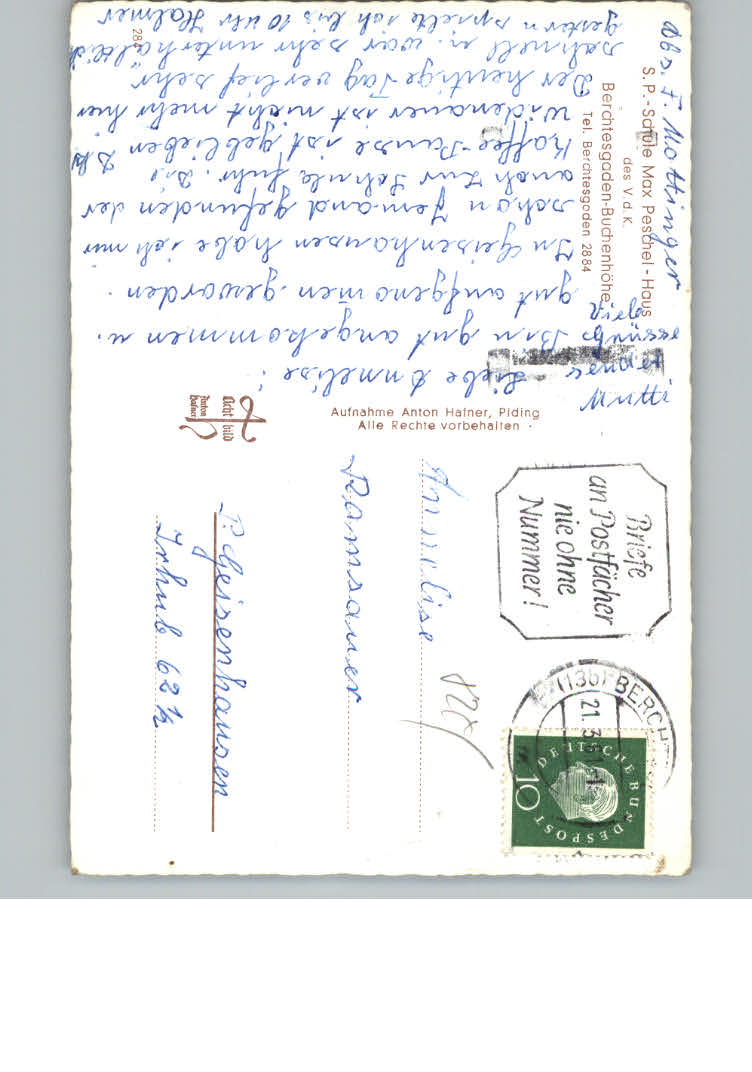 Abs. F. Mottinger
S.P.-Schule Max Peschel-Haus
des V.d.K.
Berchtesgaden-Buchenhöhe
Tel. Berchtesgaden 2884
Liebe Annelise!
Bin gut angekommen u.
gut aufgenomen geworden.
In Geisenhausen habe ich nur
schon Jemand gefunden der
auch zur Schule fuhr. Die
Kaffee-Pause ist geblieben
Widenauer ist nicht mehr hier
Der heutige Tag verlief sehr
schnell u. war sehr unterhaltlich
gestern spielte ich bis 10 Uhr Halmer
Viele
Grüsse
Mutti
284
Aufnahme Anton Hafner, Piding
Alle Rechte vorbehalten
Acht bild
Anton
Hafner
Briefe
an Postfächer
nie ohne
Nummer!
(13b) BERCHT
21.3.61
DEUTSCHE BUNDESPOST
10
Annelise
Ramsauer
P. Geisenhausen
Irhub 62 ½